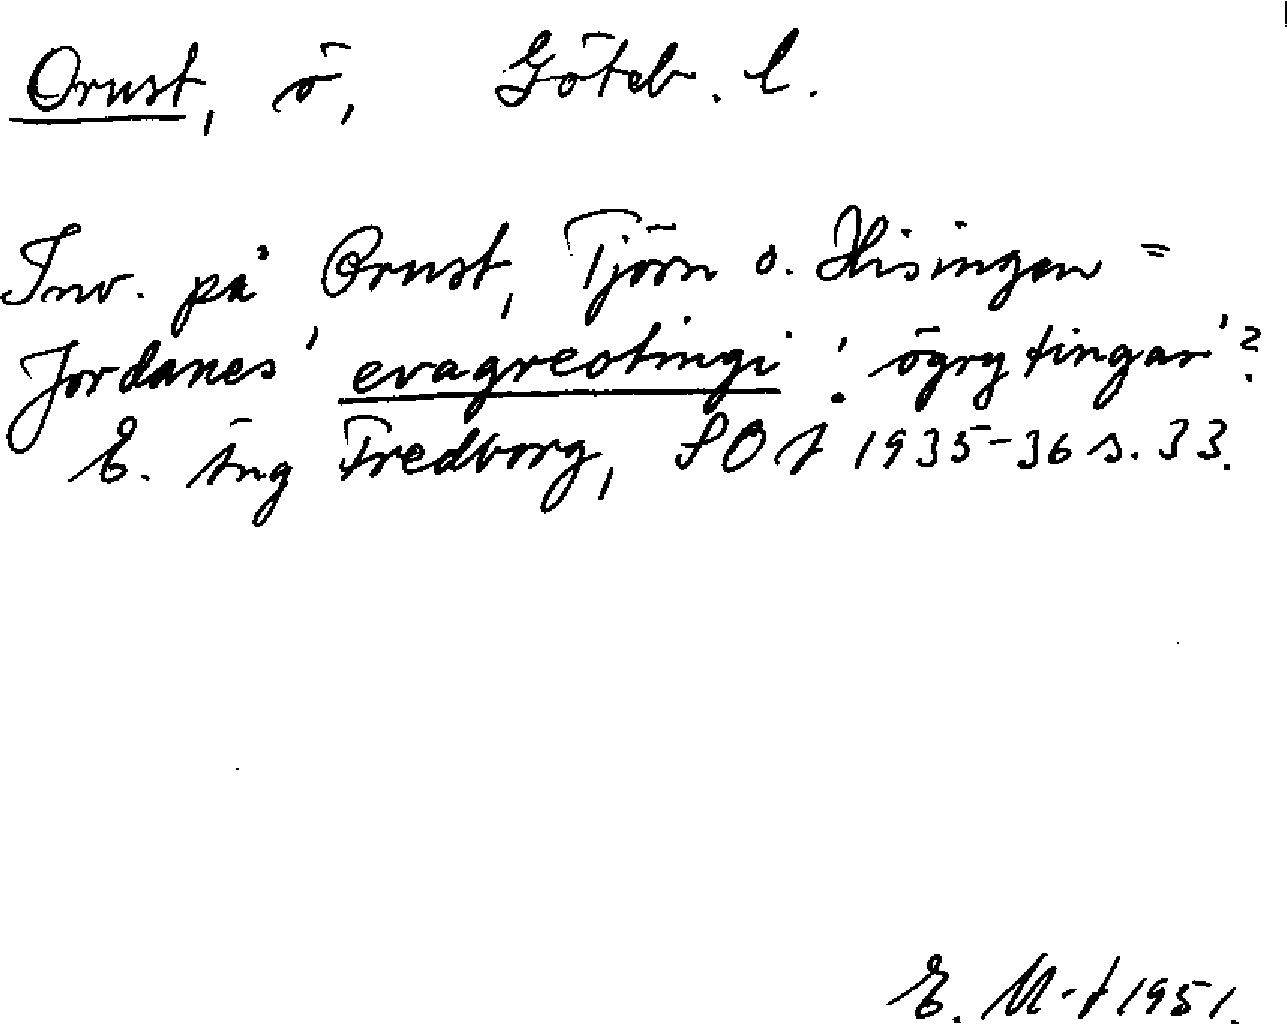 Orust, ö, Göteb. l.
Inv. på Orust, Tjörn o. Hisingen =
Jordanes' evagreotingi: 'ögrytingar'?
E. äng Fredborg, SOÅ 1935-36 s. 33.
E. M-t 1951.